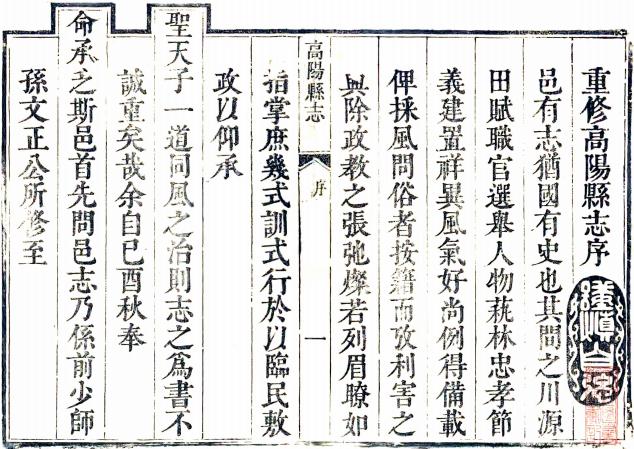 重修高陽縣志序
邑有志猶國有史也其間之川源
田賦職官選舉人物蓺林忠孝節
義建置祥異風氣好尚例得備載
俾採風問俗者按籍而攷利害之
興除政教之張弛燦若列眉瞭如
高陽縣志
序
一
指掌庶幾式訓式行於以臨民敷
政以仰承
聖天子一道同風之治則志之爲書不
誠重矣哉余自己酉秋奉
命承乏斯邑首先問邑志乃係前少師
孫文正公所修至